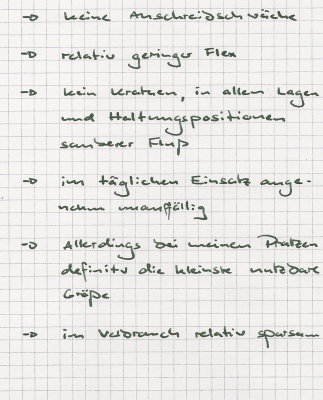 → keine Anschreibschwäche
→ relativ geringer Flex
→ kein Kratzen, in allen Lagen
und Haltungspositionen
sauberer Fluß
→ im täglichen Einsatz ange-
nehm unauffällig
→ Allerdings bei meinen Pratzen
definitiv die kleinste nutzbare
Größe
→ im Verbrauch relativ sparsam